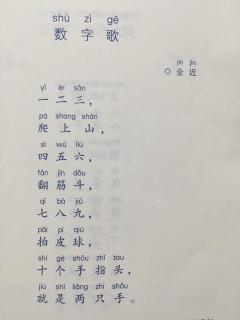 shù zì gē
数字歌
jīn jìn
◎金近
yī èr sān
一二三，
pá shang shān
爬上山，
sì wǔ liù
四五六，
fān jīn dǒu
翻筋斗，
qī bā jiǔ
七八九，
pāi pí qiú
拍皮球，
shí gè shǒu zhǐ tou
十个手指头，
jiù shì liǎng zhī shǒu
就是两只手。